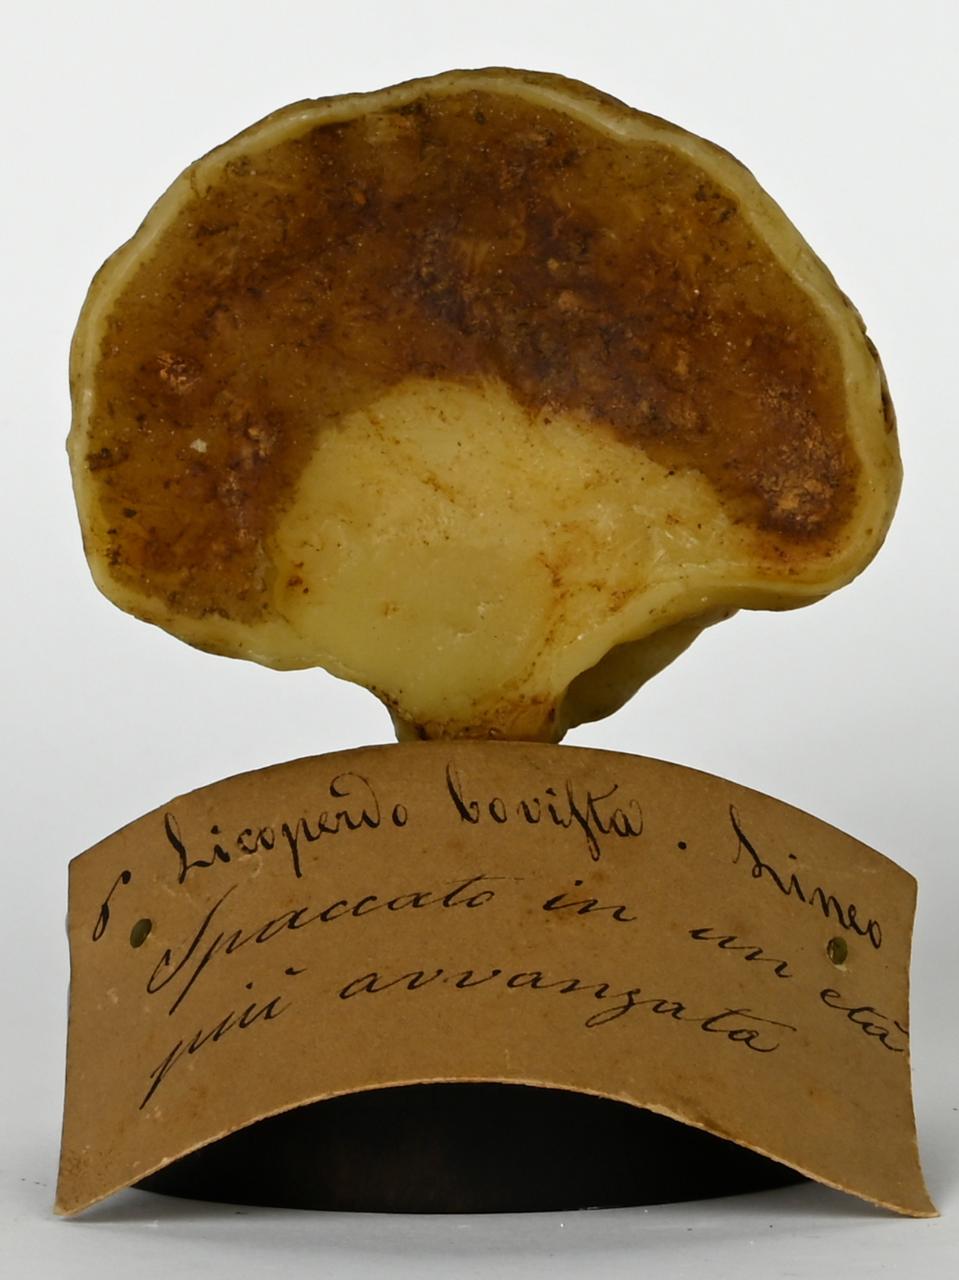 6 Licoperdo bovista. Lineo
Spaccato in un età
più avvanzata